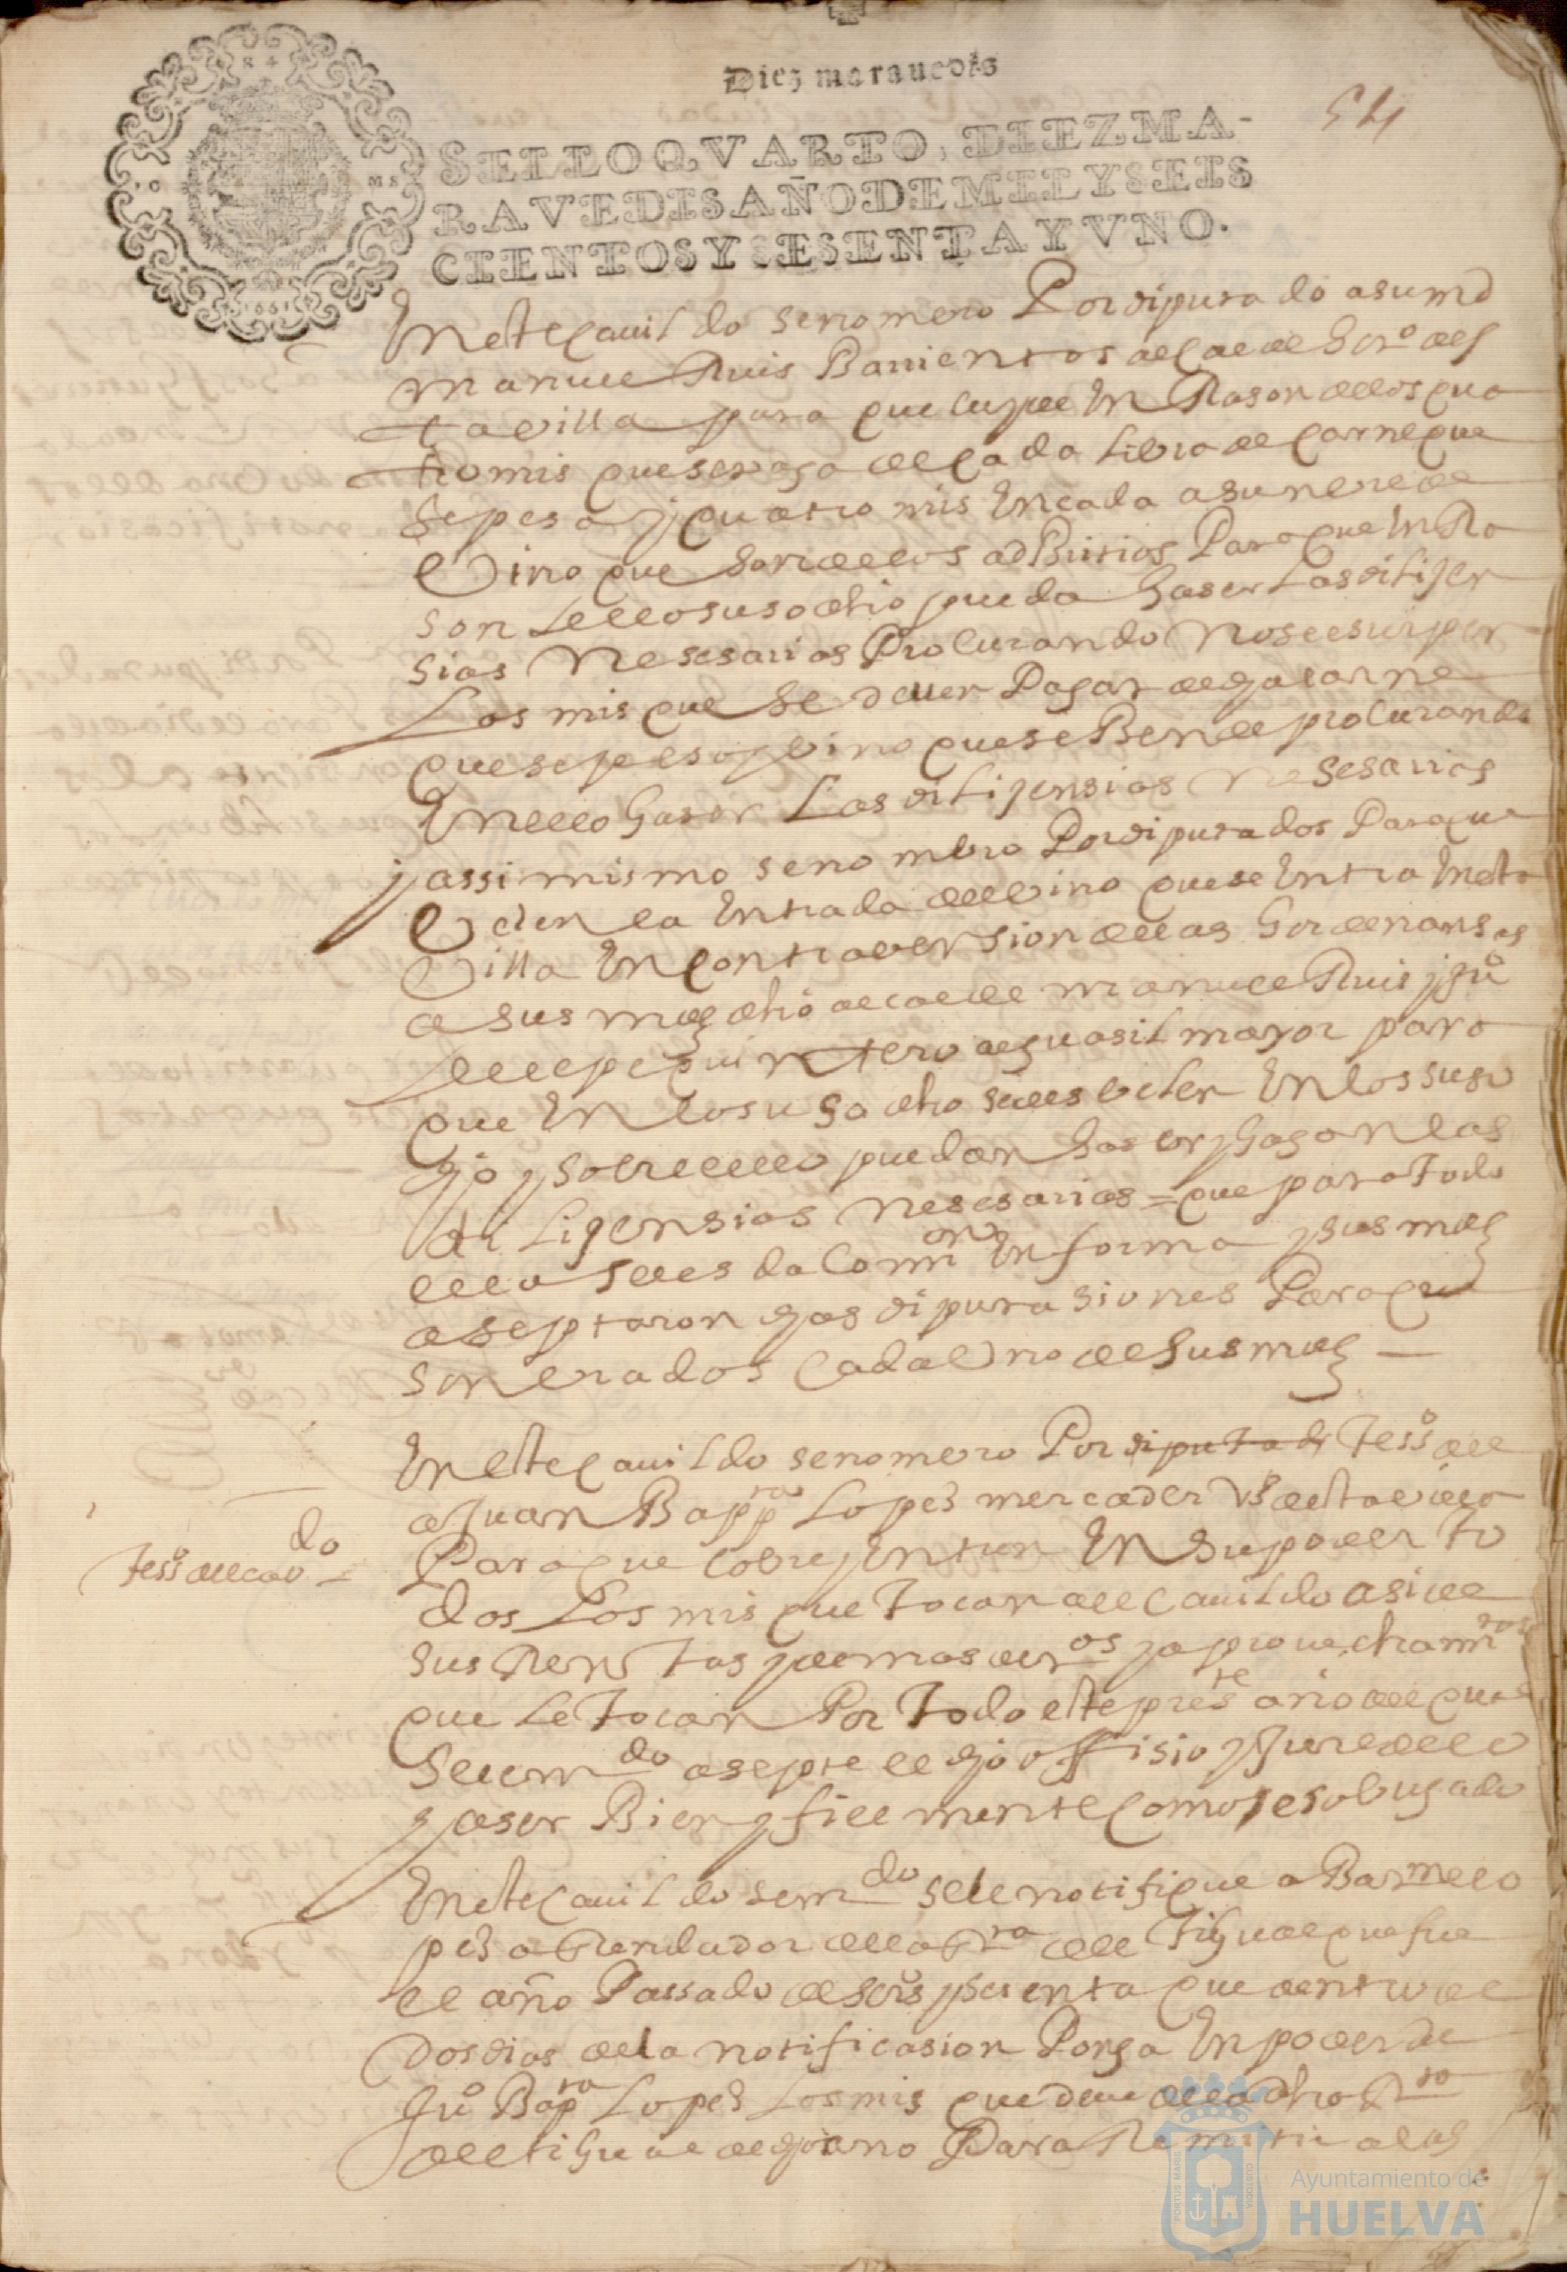 Diez marauedis
54
SELLO QVARTO, DIEZ MA-
RAVEDIS AÑO DE MIL Y SEIS
CIENTOS Y SESENTA Y VNO.
En este cauildo se nomero Por diputado a su md
manuel Ruis Barrientos alcalde hor.º des
ta villa para que cuyde en Rason de los qua
tro mrs que se paga de cada libra de carne que
se pesa y quatro mrs en cada asunbre de
Vino que son de los adBitrios Para que en Ra
son de lo suso dho pueda haser Las dilijen
sias nesesarias Procurando no se
Los mrs que se deuen Pagar de la carne
que se pesa y vino que se Bende procurando
en ello haser Las dilijensias nesesarias
y assi mismo se nombro Por diputados Para que
Velen la entrada del vino que se entra en esta
Villa en contravension de las hordenansas
a sus mds dho alcalde manuel Ruis y Juº
quintero alguasil mayor para
que en lo suso dho
y sobre ello puedan haser y hagan las
diligensias nesesarias = que para todo
ello se les da Comon en forma y sus mds
aseptaron dhas diputasiones Para que
son cada Vno de sus mds
En este cauildo se nomero Por diputado Tessº del
a Juan Bappta Lopes mercader vsº de esta villa
Tessº del cavdo
Para que cobre y entren en su poder to
dos Los mrs que tocan al cauildo asi de
sus Rentas y demas y aprouechamtos
que le tocan Por todo este preste año del qual
se le mdo asepte el dho offisio y Jure de lo
haser Bien y fielmente como es obligado
En este cauildo se mdo se le notifique a Barme lo
pes arrendador de la Rta del que fue
el año Passado de seisº y sesenta que dentro de
dos dias de la notificasion Ponga en poder de
Juº Bapta Lopes Los mrs que deue de la dha Rta
de dho año Para Remitir a las
Ayuntamiento de
HUELVA
PORTUS MARIS
CUSTODIA